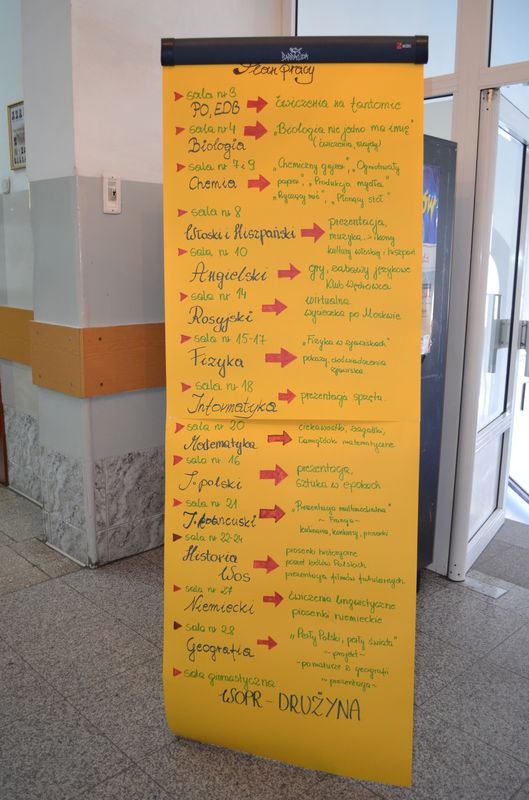 BARRACUDA
Plan pracy
sala nr 3
PO, EDB ćwiczenia na fantomie
sala nr 4 „Biologia nie jedno ma imię"
Biologia (ćwiczenia, slajdy)
sala nr 7 i 9 „Chemiczny gejzer", „Ognioodporny
Chemia papier", „Produkcja mydła
„Ryczący miś", „Płonący stół"
sala nr 8 prezentacja,
Włoski i Hiszpański muzyka, ikony
sala nr 10 kultury włoskiej i hiszpań
Angielski gry, zabawy językowe
Klub Wędrowca
sala nr 14 wirtualna
Rosyjski wycieczka po Moskwie
sala nr 15-17 „Fizyka w zjawiskach"
Fizyka pokazy, doświadczenia
zjawiska
sala nr 18
Informatyka prezentacja sprzętu
sala nr 20 ciekawostki, zagadki,
Matematyka łamigłówki matematyczne
sala nr 16 prezentacja,
J. polski sztuka w epokach
sala nr 21 „Prezentacja multimedialna"
J. francuski ~ Francja ~
kulinaria, konkursy, piosenki
sala nr 22-24 piosenki historyczne
Historia
Wos prezentacja filmów fabularnych
sala nr 27 ćwiczenia lingwistyczne
Niemiecki piosenki niemieckie
sala nr 28 „Perły Polski, perły świata"
Geografia ~ projekt ~
~ po maturze z geografii
~ prezentacja ~
sala gimnastyczna
WOPR - DRUŻYNA